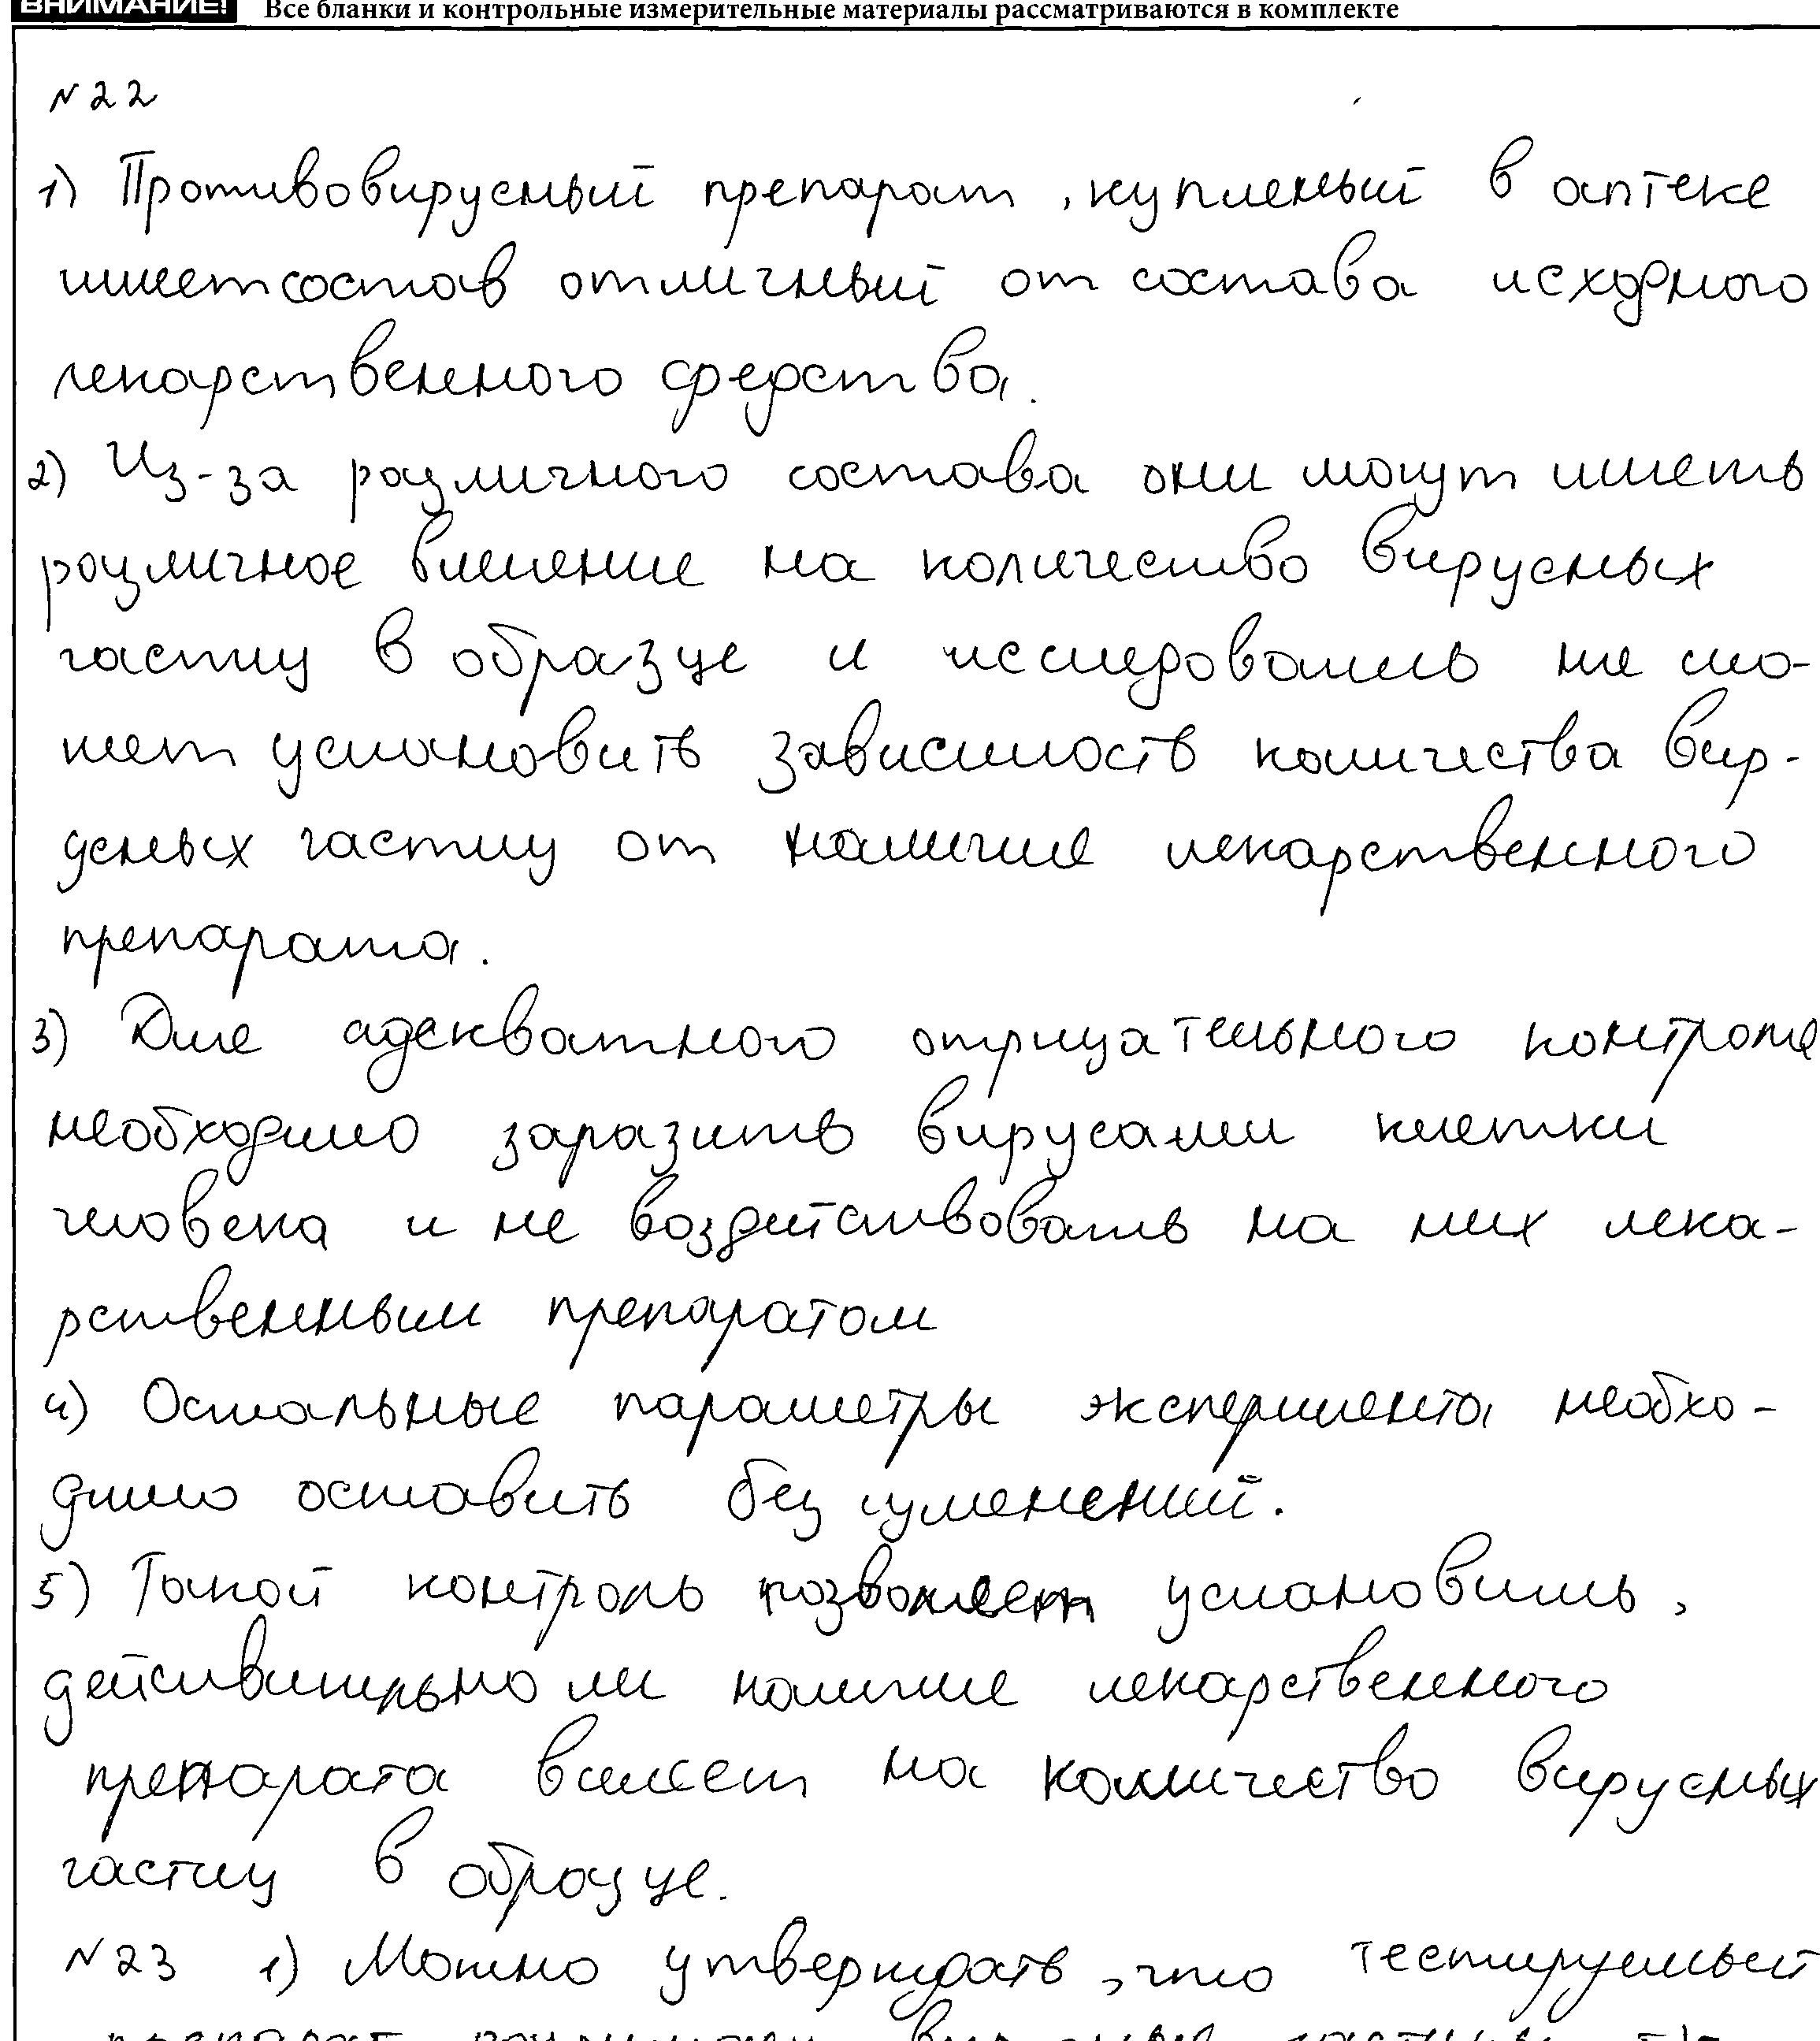 ВНИМАНИЕ! Все бланки и контрольные измерительные материалы рассматриваются в комплекте
№22
1) Противовирусный препарат, купленый в аптеке
имеет состав отличный от состава исходного
лекарственного средства.
2) Из-за различного состава они могут иметь
различное влияние на количество вирусных
частиц в образце и исследователь не смо-
жет установить зависимость количества вир-
усных частиц от наличия лекарственного
препарата.
3) Для адекватного отрицательного контроля
необходимо заразить вирусами клетки
человека и не воздействовать на них лека-
рственным препаратом
4) Остальные параметры эксперимента необхо-
димо оставить без изменений.
5) Такой контроль позволяет установить,
действительно ли наличие лекарственного
препарата влияет на количество вирусных
частиц в образце.
№23 1) Можно утверждать, что тестируемый
препарат